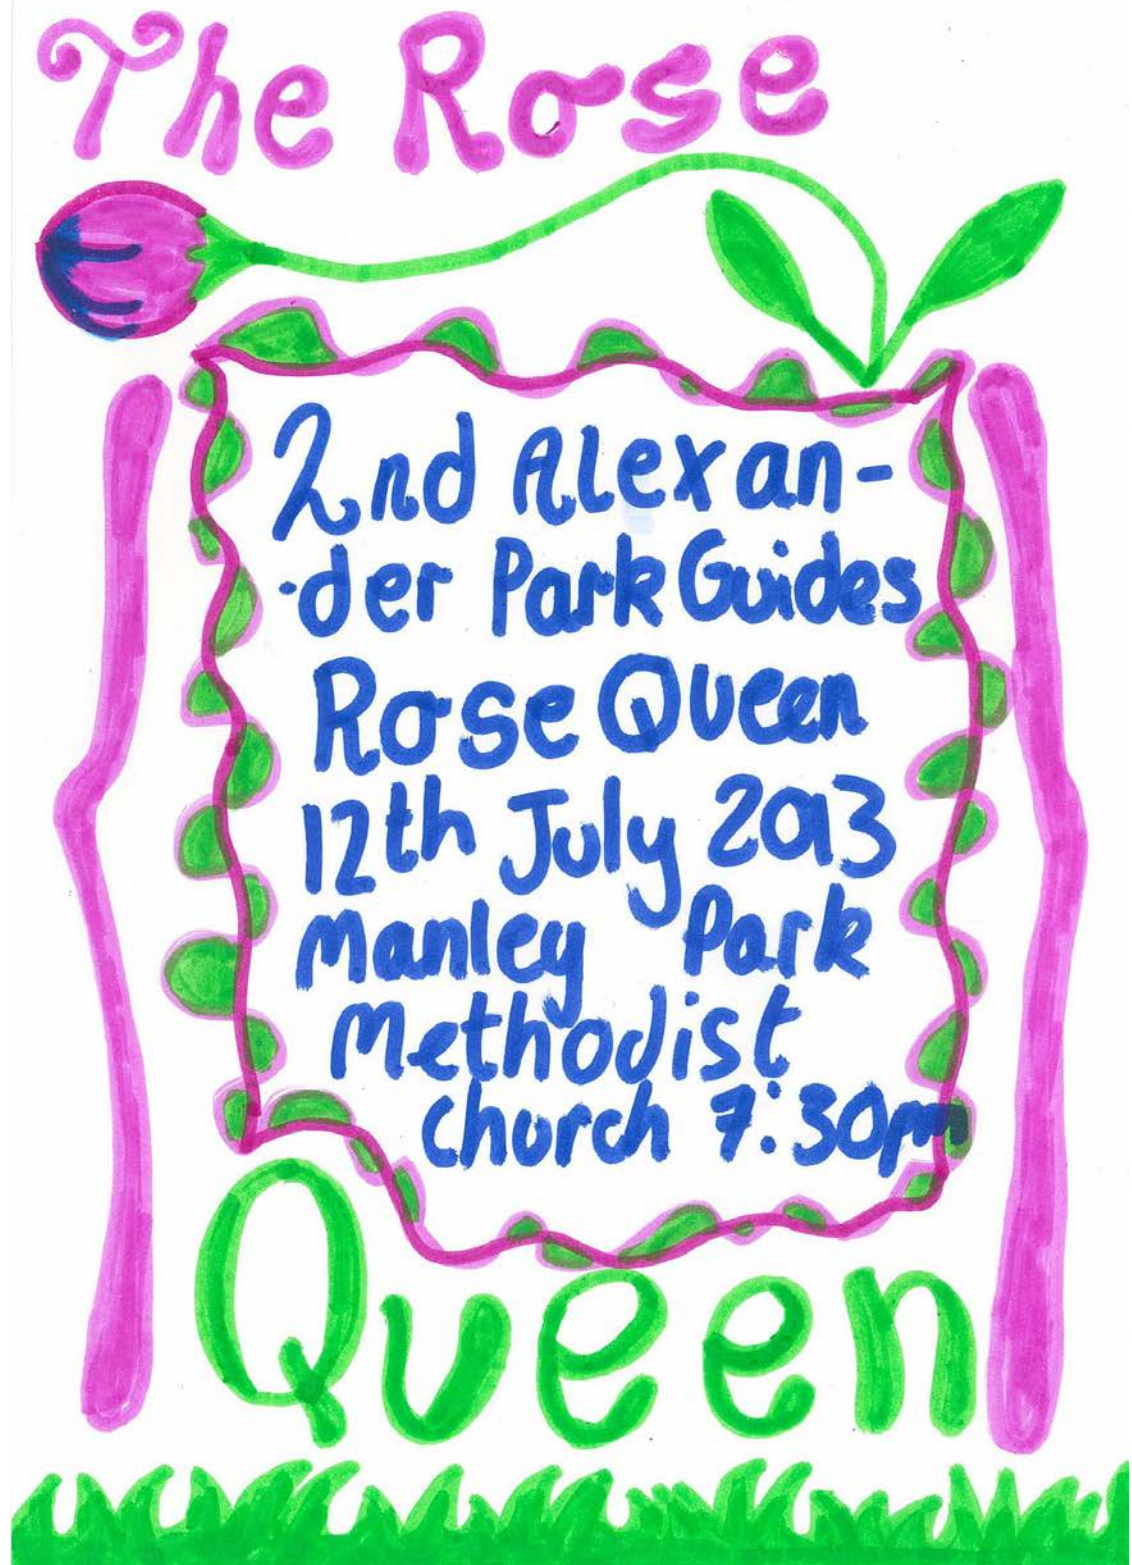 The Rose
2nd Alexan-
-der Park Guides
Rose Queen
12th July 2013
Manley Park
Methodist
church 7:30pm
Queen